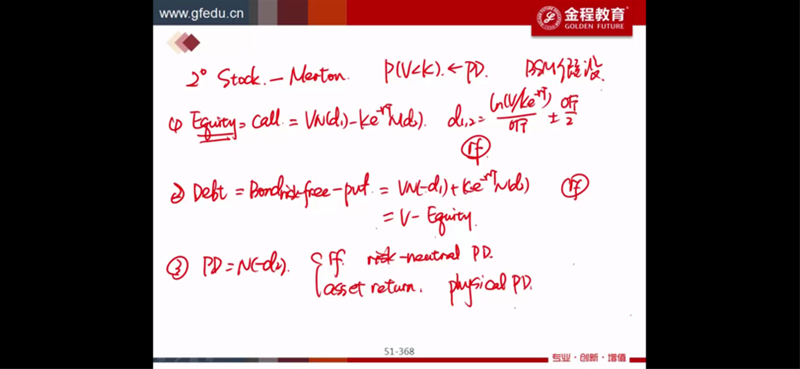 www.gfedu.cn
金程教育
GOLDEN FUTURE
2° Stock – Merton. P(V<K). ← PD. BSM假设
(1) Equity = call = VN(d₁) – Ke^-rT N(d₂). d₁,₂ = ln(V/Ke^-rT) / σ√T ± σ√T / 2
rf
(2) Debt = Bond risk-free – put = VN(-d₁) + Ke^-rT N(d₂) rf
= V – Equity.
(3) PD = N(-d₂). { rf. risk-neutral PD.
asset return. physical PD.
51-368
专业·创新·增值